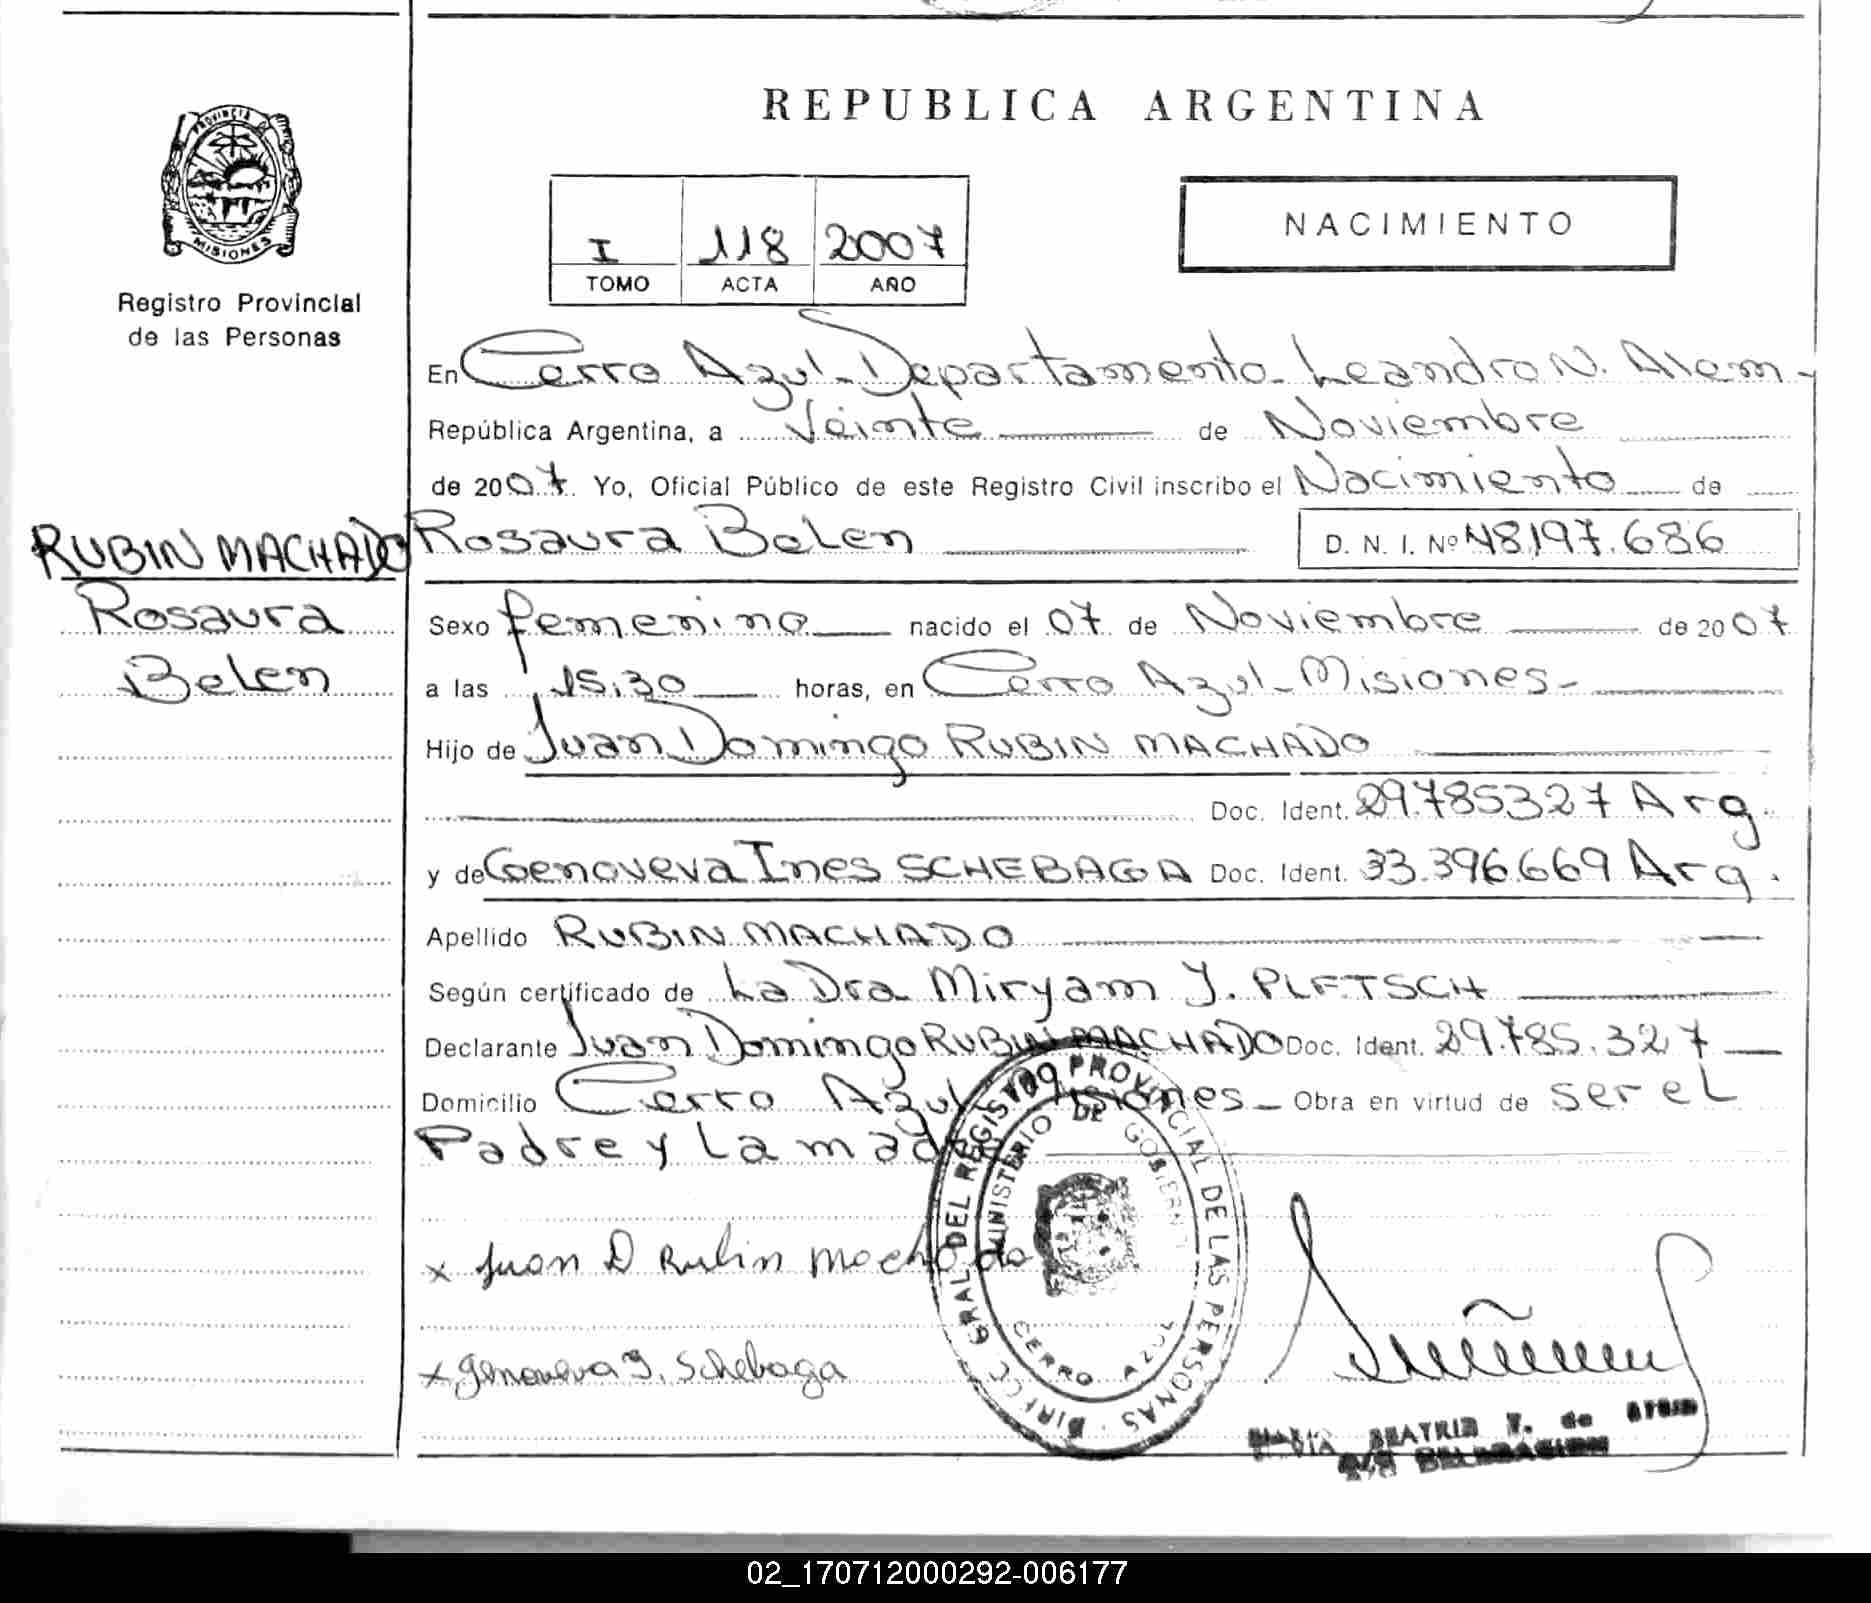 REPUBLICA ARGENTINA
PROVINCIA DE
MISIONES
Registro Provincial
de las Personas
I 118 2007
TOMO ACTA AÑO
NACIMIENTO
En Cerro Azul - Departamento Leandro N. Alem -
República Argentina, a Veinte de Noviembre
de 2007. Yo, Oficial Público de este Registro Civil inscribo el Nacimiento de
RUBIN MACHADO
Rosaura
Belen
Rosaura Belen D. N. I. Nº 48197.686
Sexo femenino nacido el 07 de Noviembre de 2007
a las 15:30 horas, en Cerro Azul - Misiones -
Hijo de Juan Domingo RUBIN MACHADO
Doc. Ident. 29.785327 Arg.
y de Genoveva Ines SCHEBAGA Doc. Ident. 33.396.669 Arg.
Apellido RUBIN MACHADO
Según certificado de La Dra Miryam J. PLETSCH
Declarante Juan Domingo RUBIN MACHADO Doc. Ident. 29.785.327
Domicilio Cerro Azul Misiones - Obra en virtud de ser el
Padre y La madre
x Juan D Rubin Machado
x Genoveva I. Schebaga
DIRECC. GRAL. DEL REGISTRO PROVINCIAL DE LAS PERSONAS
MINISTERIO DE GOBIERNO
CERRO AZUL
MARIA BEATRIZ V. de
DELEGACION
02_170712000292-006177